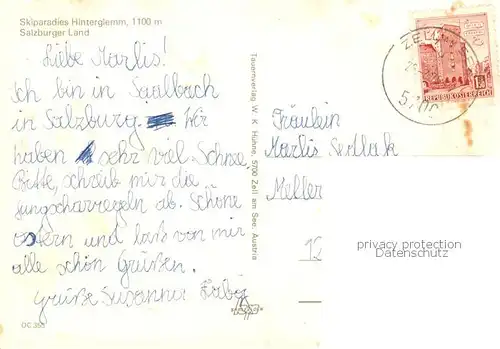 Skiparadies Hinterglemm, 1100 m
Salzburger Land
Liebe Marlis!
Ich bin in Saalbach
in Salzburg. Wir
haben sehr viel Schnee.
Bitte, schreib mir die
Jungscharregeln ab. Schöne
Ostern und laß von mir
alle schön Grüßen.
Grüße Susanne
OC 355
Tauernverlag W. K. Hühne, 5700 Zell am See, Austria
ZELL
5700
REPUBLIK ÖSTERREICH
Fräulein
Marlis Sedlak
12
privacy protection
Datenschutz